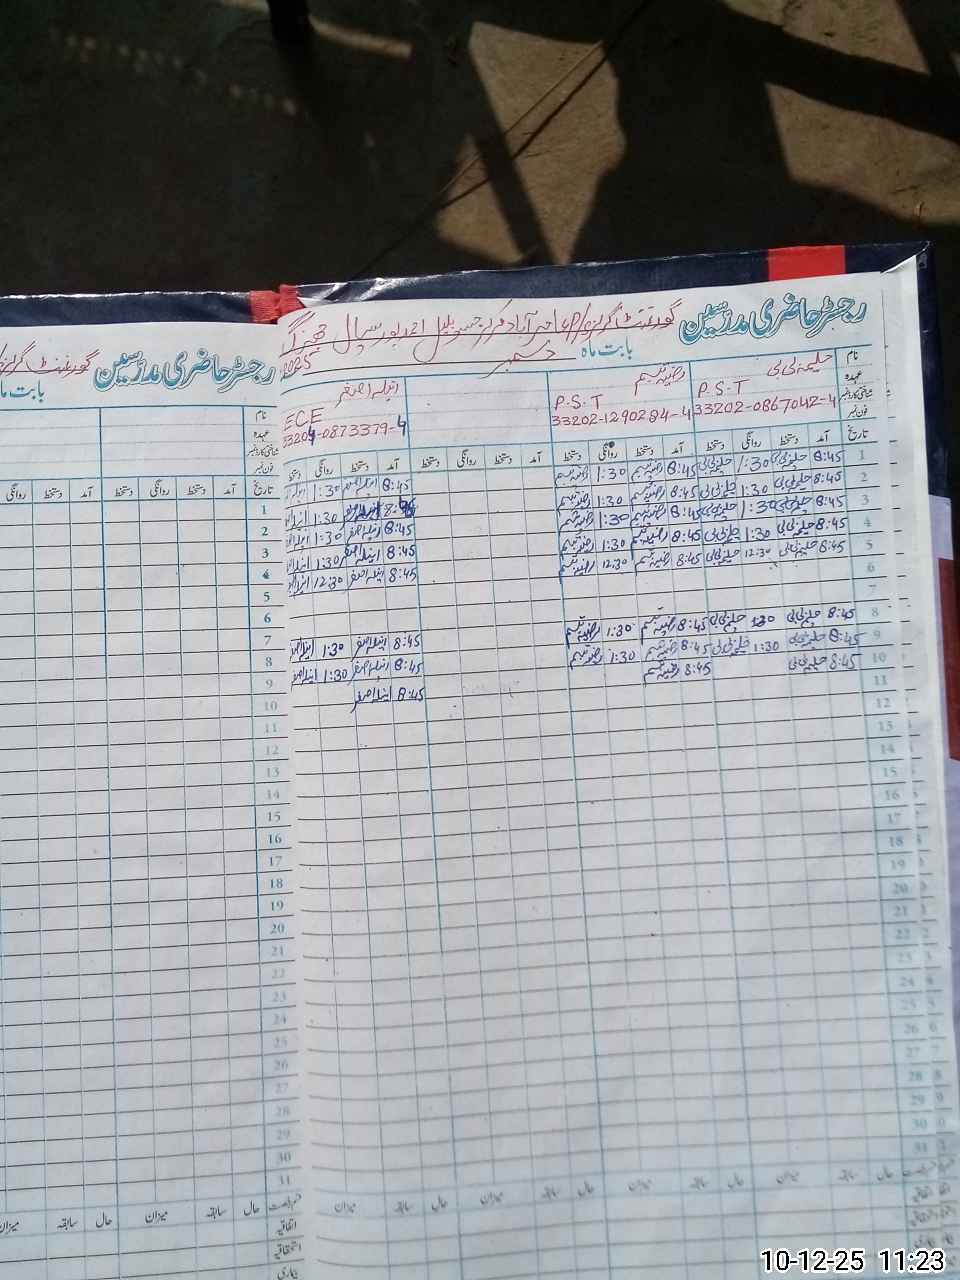 رجسٹر حاضری مدرسین گورنمنٹ گرلز
بابت ماہ دسمبر 2025
نام حلیمہ بی بی رضیہ تبسم انیلہ اصغر
عہدہ P.S.T P.S.T ECE
شناختی کارڈ نمبر 33202-0867042-4 33202-1290284-4 33204-0873379-4
فون نمبر
تاریخ آمد دستخط روانگی دستخط آمد دستخط روانگی دستخط آمد دستخط روانگی دستخط آمد دستخط روانگی دستخط
1 8:45 حلیمہ بی بی 1:30 حلیمہ بی بی 8:45 رضیہ تبسم 1:30 رضیہ تبسم 8:45 انیلہ اصغر 1:30
2 8:45 حلیمہ بی بی 1:30 حلیمہ بی بی 8:45 رضیہ تبسم 1:30 رضیہ تبسم 1:30
3 8:45 حلیمہ بی بی 1:30 حلیمہ بی بی 8:45 رضیہ تبسم 1:30 رضیہ تبسم 8:45 انیلہ اصغر 1:30
4 8:45 حلیمہ بی بی 1:30 حلیمہ بی بی 8:45 رضیہ تبسم 1:30 رضیہ تبسم 8:45 انیلہ اصغر 1:30
5 8:45 حلیمہ بی بی 12:30 حلیمہ بی بی 8:45 رضیہ تبسم 12:30 رضیہ تبسم 8:45 انیلہ اصغر 12:30
6
7
8 8:45 حلیمہ بی بی 1:30 حلیمہ بی بی 8:45 رضیہ تبسم 1:30 رضیہ تبسم 8:45 انیلہ اصغر 1:30
9 8:45 حلیمہ بی بی 1:30 حلیمہ بی بی 8:45 رضیہ تبسم 1:30 رضیہ تبسم 8:45 انیلہ اصغر 1:30
10 8:45 حلیمہ بی بی 8:45 رضیہ تبسم 8:45 انیلہ اصغر
11
12
13
14
15
16
17
18
19
20
21
22
23
24
25
26
27
28
29
30
31
حال سابقہ میزان حال سابقہ میزان حال سابقہ میزان
رجسٹر حاضری مدرسین گورنمنٹ گرلز
بابت ماہ
نام
عہدہ
شناختی کارڈ نمبر
فون نمبر
تاریخ آمد دستخط روانگی دستخط آمد دستخط روانگی
1
2
3
4
5
6
7
8
9
10
11
12
13
14
15
16
17
18
19
20
21
22
23
24
25
26
27
28
29
30
31
حال سابقہ میزان حال سابقہ میزان
اتفاقیہ
استحقاقیہ
بیماری
10-12-25 11:23